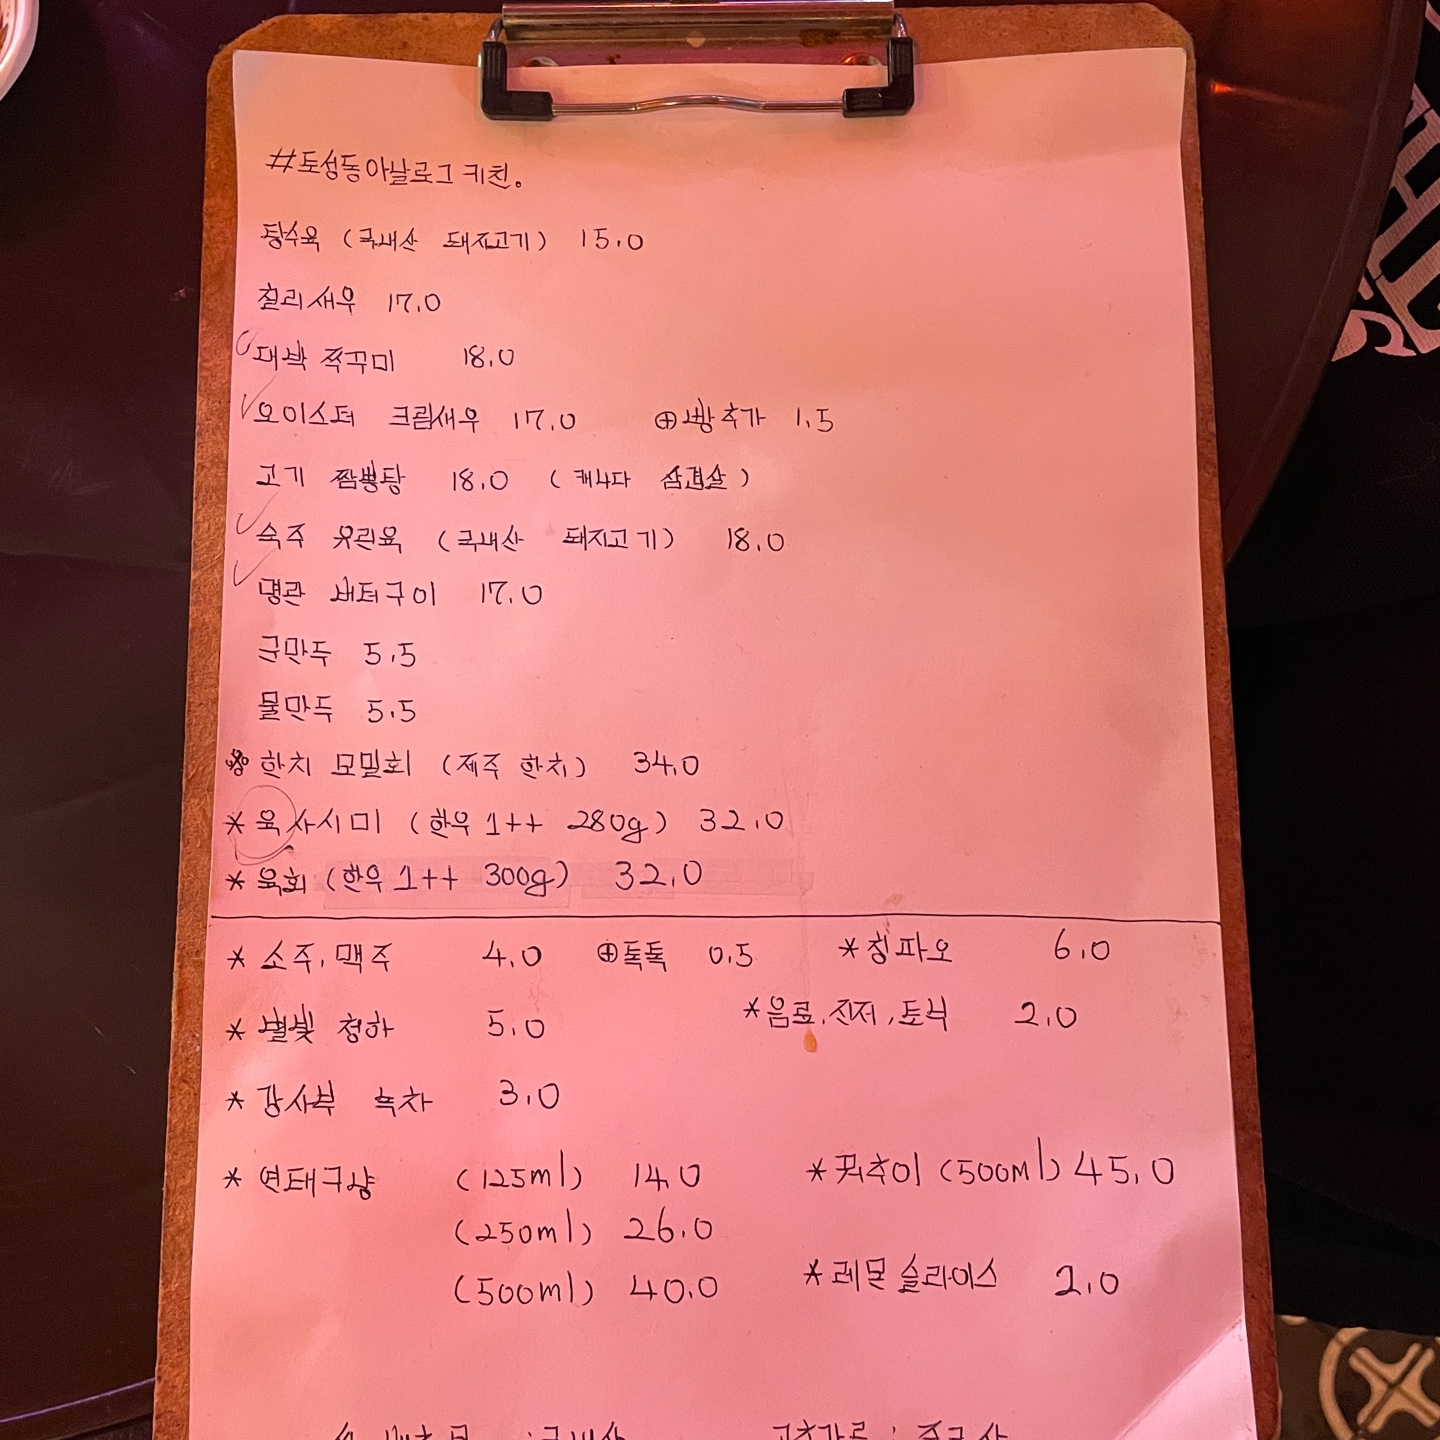 #토성동아날로그키친.
탕수육 (국내산 돼지고기) 15.0
칠리새우 17.0
대박 쭈꾸미 18.0
오이스터 크림새우 17.0 ⊕빵추가 1.5
고기 짬뽕탕 18.0 (캐나다 삼겹살)
숙주 유린육 (국내산 돼지고기) 18.0
명란 버터구이 17.0
군만두 5.5
물만두 5.5
한치 모밀회 (제주 한치) 34.0
* 육사시미 (한우 1++ 280g) 32.0
* 육회 (한우 1++ 300g) 32.0
* 소주, 맥주 4.0 ⊕톡톡 0.5 * 칭따오 6.0
* 별빛 청하 5.0 * 음료, 진저, 토닉 2.0
* 감사부 녹차 3.0
* 연태구냥 (125ml) 14.0 * 꿔추이 (500ml) 45.0
(250ml) 26.0
(500ml) 40.0 * 레몬 슬라이스 2.0
고춧가루 : 중국산